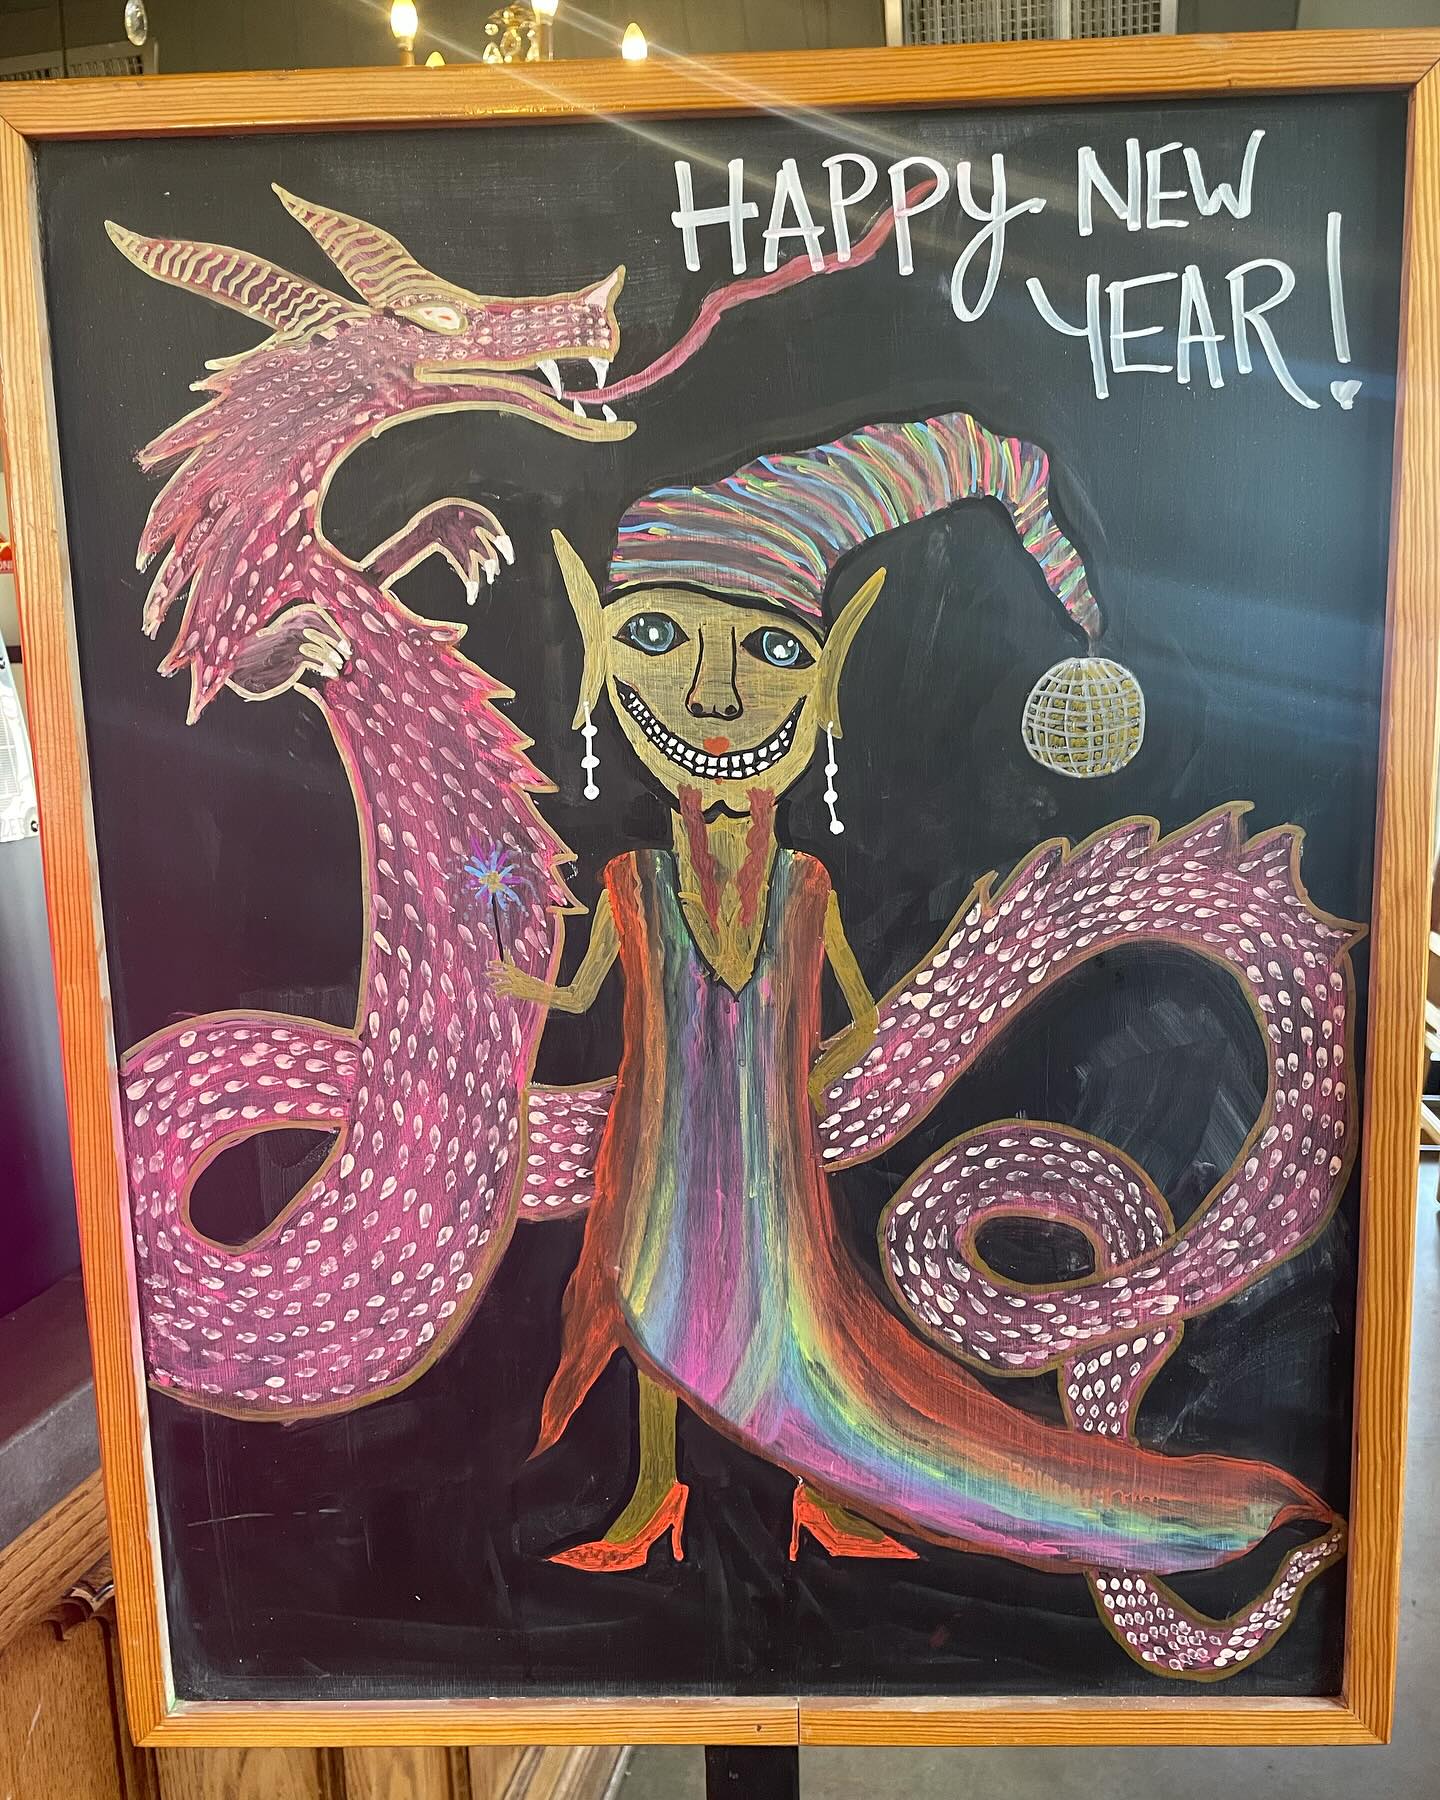 HAPPY NEW
YEAR!